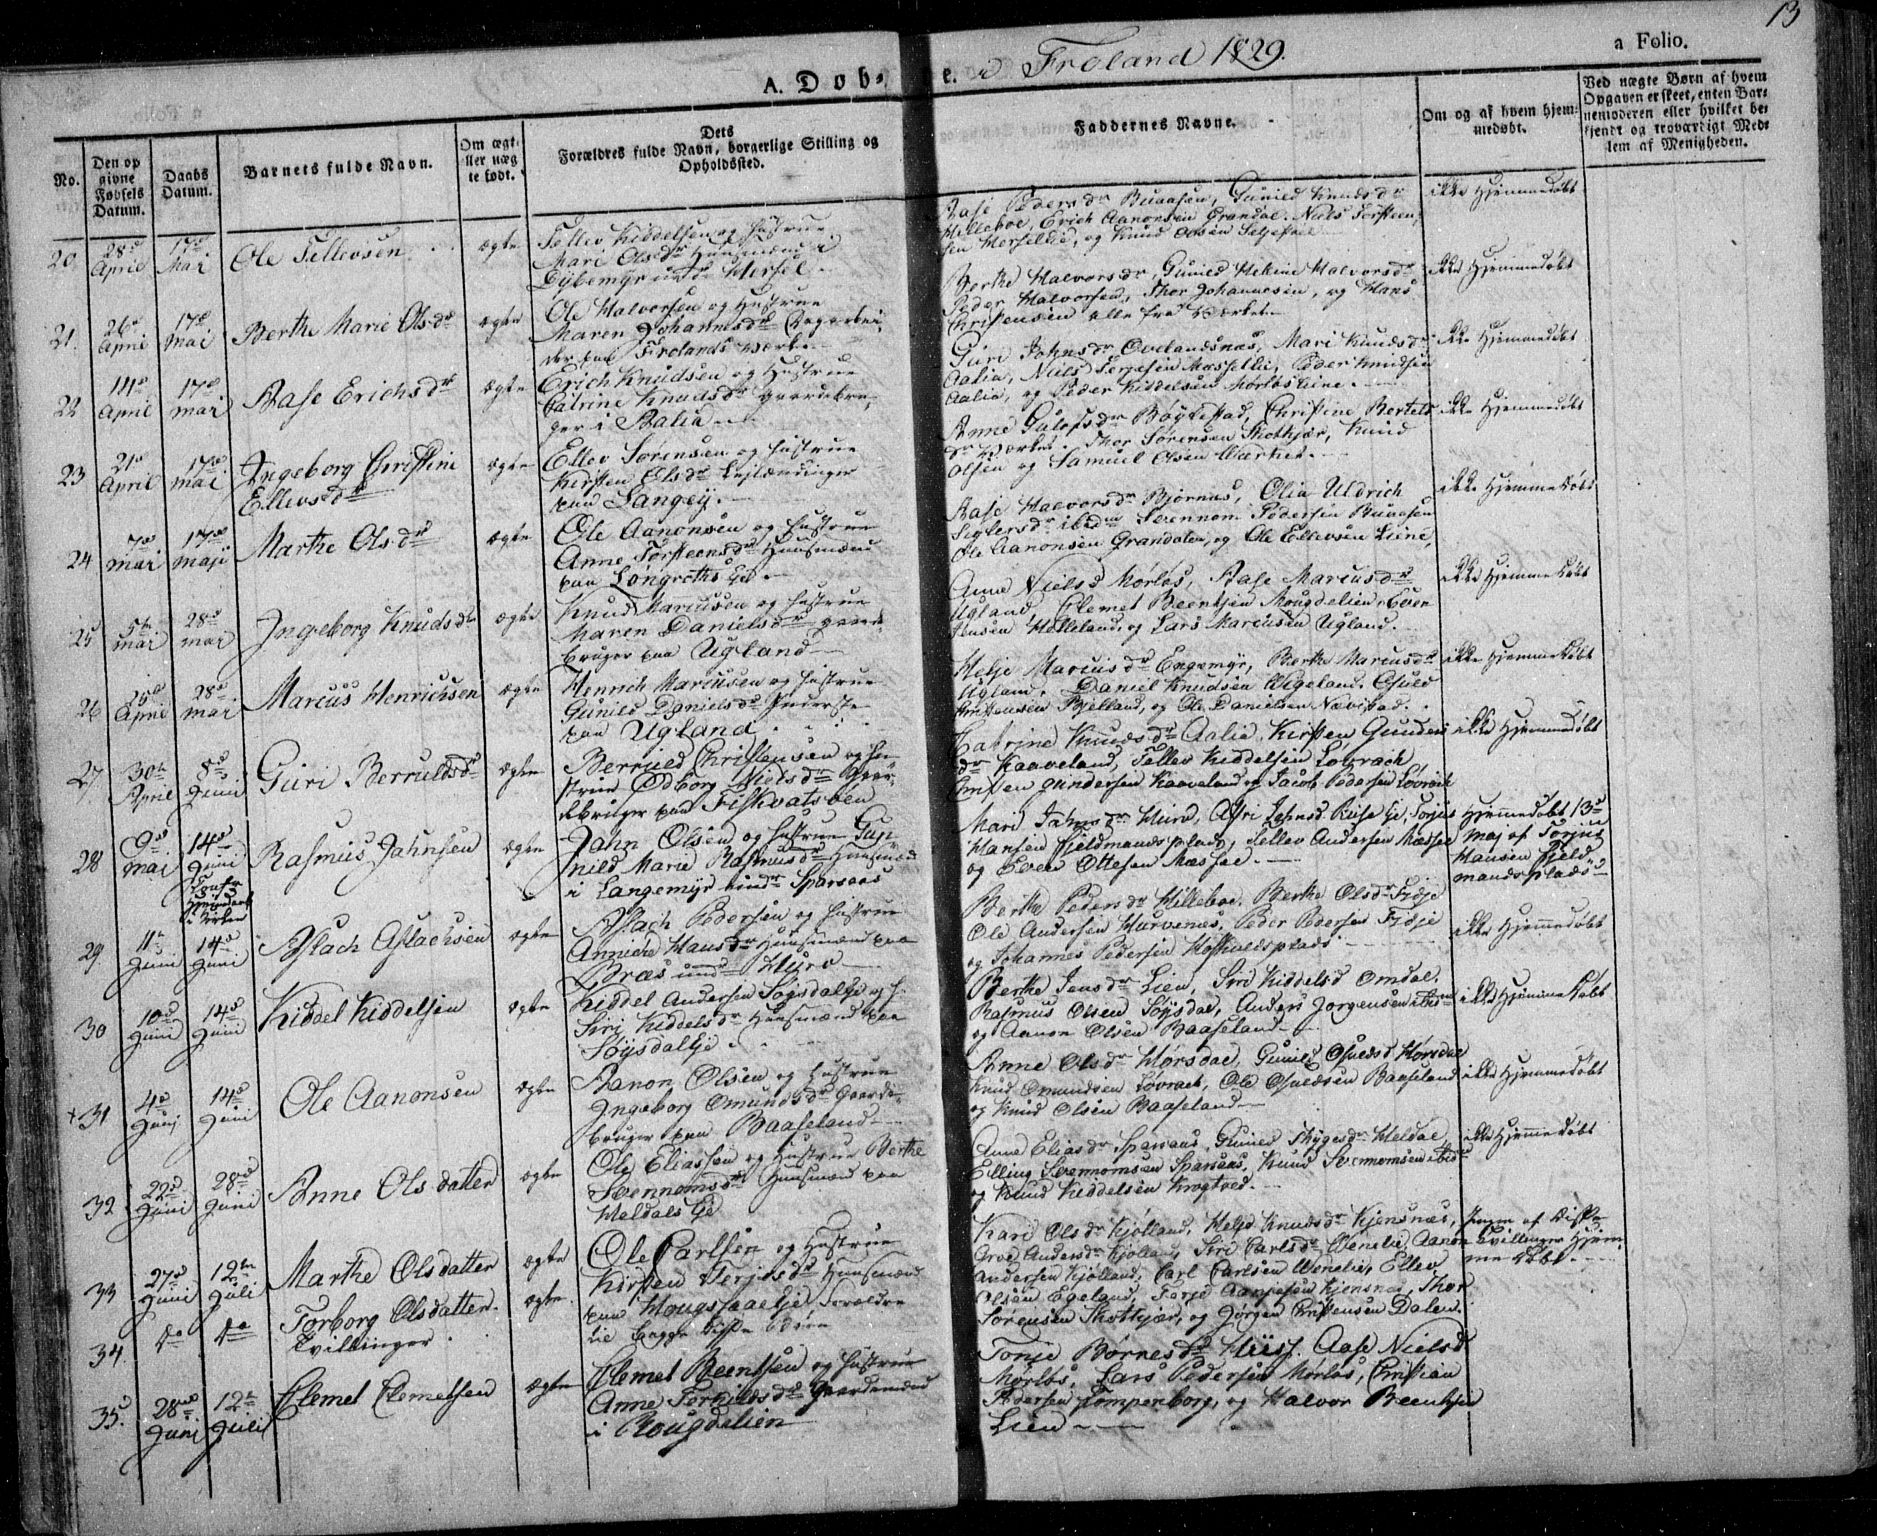 13
A. Døb-
e. i Froland 1829.
a Folio.
No.
Den op
givne
Fødsels
Datum.
Daabs
Datum.
Barnets fulde Navn.
Om ægte
eller uæg
te født.
Dets
Forældres fulde Navn, borgerlige Stilling og
Opholdssted.
Faddernes Navne.
Om og af hvem hjem-
medøbt.
Ved uægte Børn af hvem
Opgaven er skeet, enten Bar-
nemoderen eller hvilket be-
kjendt og troværdigt Med-
lem af Menigheden.
20
28d
April
17d
Mai
Ole Tellevsen
ægte
Tellev Kiddelsen og Hustrue
Mari Olsdr Huusmænd i
Aase Pedersdr Buaasen, Gunild Knudsdr
Hilleboe, Erich Aanonsen Grandal. Niels Torsteen-
ikke Hjemmedøbt
21.
26d
April
17d
Mai
Berthe Marie Olsdr
ægte
Ole Halvorsen og Hustrue
Maren Johannesdr
der paa Frolands Værk
Berthe Halvorsdr, Gunild Helene Halvorsdr
Peder Halvorsen, Thor Johannesen, og Hans
Christensen alle fra Værket
ikke Hjemmedøbt
22
14d
April
17d
mai
Aase Erichsdr
ægte
Erich Knudsen og Hustrue
Catrine Knudsdr Gaardebru-
ger i Aalia
Guri Jahnsdr Ovelandsnæs, Mari Knudsdr
Aalia, Niels Terjesen Mæsselie, Peder Knudsen
Aalia, og Peder Kiddelsen Mørløs Eine.
ikke Hjemmedøbt
23
21d
April
17d
mai
Ingeborg Christine
Ellevsdr
ægte
Ellev Sørensen og Hustrue
Kirsten Elsdr Leilændinger
paa Langeij.
Anne Bøylestad, Christine Bertels
dr Værket. Thor Sørensen Skotkjær, Knud
Olsen og Samuel Olsen Værket.
ikke Hjemmedøbt
24
7d
mai
17d
maji
Marthe Olsdr
ægte
Ole Aanonsen og Hustrue
Anne Torsteensdr Huusmænd
paa
Aase Halvorsdr Bjørnaas, Olia Uldrich
Svennom Pedersen Buaasen
Ole Aanonsen Grandalen, og Ole Ellevsen Liene,
ikke Hjemmedøbt
25
5te
mai
28d
mai
Ingeborg Knudsdr
ægte
Knud Marcusen og Hustrue
Maren Danielsdr Gaarde-
bruger paa Ugland
Anne Nielsd Mørløs, Aase Marcusdr
Ugland, Clemet Beentsen Mougdelien, Even
Jensen Holleland, og Lars Marcusen Ugland.
ikke Hjemmedøbt
26
25d
April
28d
mai
Marcus Henrichsen
ægte
Henrich Marcusen og Hustrue
Gunild Danielsdr Inderste
paa Ugland
Helje Marcusdr Engemyr, Berthe Marcusdr
Ugland. Daniel Knudsen Vigeland. Osuld
Christensen Bjelland, og Ole Danielsen Nævestad.
ikke Hjemmedøbt
27
30te
April
8d
Juni
Guri Berruldsdr
ægte
Berruld Christensen og Hu-
strue Odborg Nielsdr Gaar-
debruger paa Fiskvatsøen
Catrine Knudsdr Aalia, Kirsten Gunders
dr Kaaveland, Tellev Kiddelsen Løvrach
Christen Gundersen Kaaveland og Jacob Pedersen Løvrach
ikke Hjemmedøbt
28
9d
mai
14d
Juni
i Kirken
Rasmus Jahnsen
ægte
Jahn Olsen og Hustrue Gun
nild Marie Rasmusdr Huusmænd
i Langemyr Sparsaas
Mari Jahnsdr Hurv, Asfri Jehnsd. Torjus
Hansen Fjeldmandsplads, Tellev Andersen Mæssel
og Even Ottesen Mæssel.
Hjemmedøbt 13d
maj af Torjus
Hansen Fjeld-
mandsplads
29
11te
Juni
14d
Juni
Aslach Aslachsen
ægte
Aslach Pedersen og Hustrue
Hansdr Huusmænd paa
Bræs und Hurv
Berthe Pedersdr Hilleboe. Berthe Olsdr
Ole Andersen Hurvenæs, Peder Pedersen
og Johannes Pedersen
ikke Hjemmedøbt
30
10d
Juni
14d
Juni
Kiddel Kiddelsen
ægte
Kiddel Andersen Søysdalkje og H.
Siri Kiddelsdr Huusmænd paa
Søysdalkje.
Berthe Jensdr Lien, Siri Kiddelsd Omdal,
Rasmus Olsen Søysdal, Anders Jorgensen ibidm
og Aanon Olsen Baaseland
ikke Hjemmedøbt
+31
4d
Junj
14d
Juni
Ole Aanonsen
ægte
Aanon Olsen og Hustrue
Ingeborg Omundsdr Gaarde-
bruger paa Baaseland
Anne Olsdr Hørsdal, Gunild Osuldsd Hørsdal
Knud Omundsen Løvrach, Ole Osuldsen Baaseland
og Knud Olsen Baaseland
ikke Hjemmedøbt
32
22d
Juni
28d
Juni
Anne Olsdatter
ægte
Ole Eliassen og Hustrue Berthe
Svennomsdr Huusmænd paa
Anne Eliasdr Sparsaas, Gunild Thygesdr Heldal
Elling Svennomsen Sparsaas, Knud Svennomsen ibidm
og Knud Kiddelsen Krogtved.
ikke Hjemmedøbt
33
27d
Juni
12te
Juli
Marthe Olsdatter
ægte
34.
do
do
Torborg Olsdatter.
Tvillinger.
ægte.
Ole Carlsen og Hustrue
Kirsten Terjesdr Huusmænd
paa Forældre
til begge disse
Kari Olsdr Kjølland, Helje Knudsdr Kjensnæs,
Groe Andersdr Kjølland, Siri Carlsdr Wenelie, Aanon
Andersen Kjølland, Carl Carlsen Wenelie, Ellev
Olsen Egeland, Terje Aanjesen Kjensnæs, Thor
Sørensen Skotkjær, og Jørgen Christensen Dalen.
Ingen af disse
Tvillinger Hjem-
medøbt.
35.
28d
Junj
12te
Juli
Clemet Clemetsen
ægte
Clemet Beentsen og Hustrue
Anne Terkildsdr Gaardemænd
i Mougdalien
Tonje Børnesdr Hiis, Aase Nielsd
Mørløs, Lars Pedersen Mørløs, Christian
Pedersen Tompenborg, og Halvor Beentsen
Lien